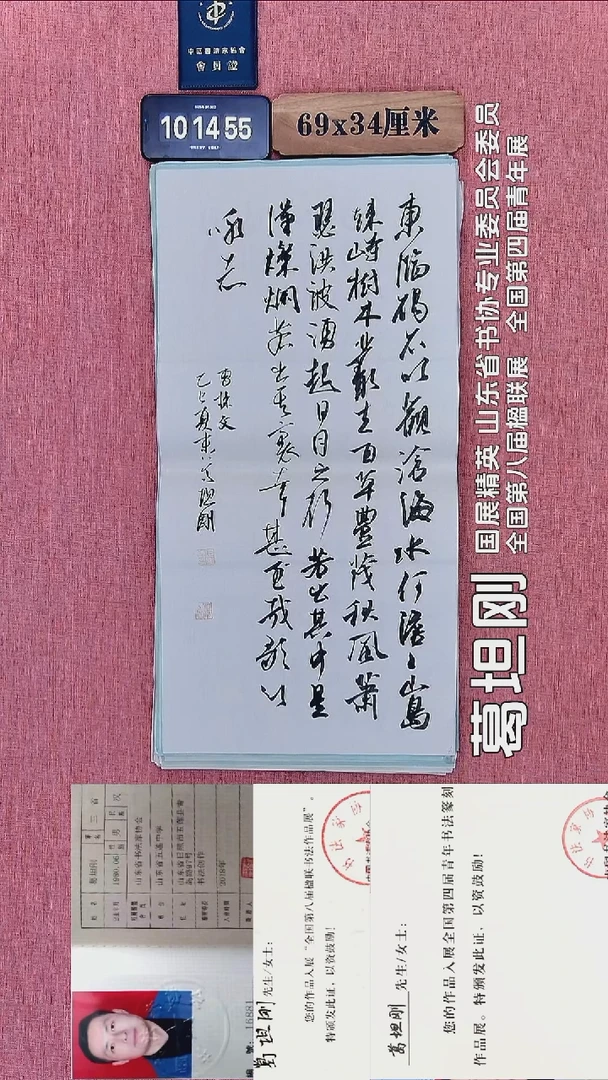 會員證
10 14 55
69x34厘米
東臨碣石以觀滄海水何澹々山島
竦峙樹木叢生百草豐茂秋風蕭
瑟洪波湧起日月之行若出其中星
漢燦爛若出其裏幸甚至哉歌以
詠志
曹操文
葛坦刚
国展精英 山东省书协专业委员会委员
全国第八届楹联展 全国第四届青年展
山东省书法家协会
书法创作
2018年
號: 16881
葛坦刚 先生/女士:
您的作品入展“全国第八届楹联书法作品展”。
特颁发此证，以资鼓励!
葛坦刚 先生/女士:
您的作品入展全国第四届青年书法篆刻
作品展。特颁发此证，以资鼓励!